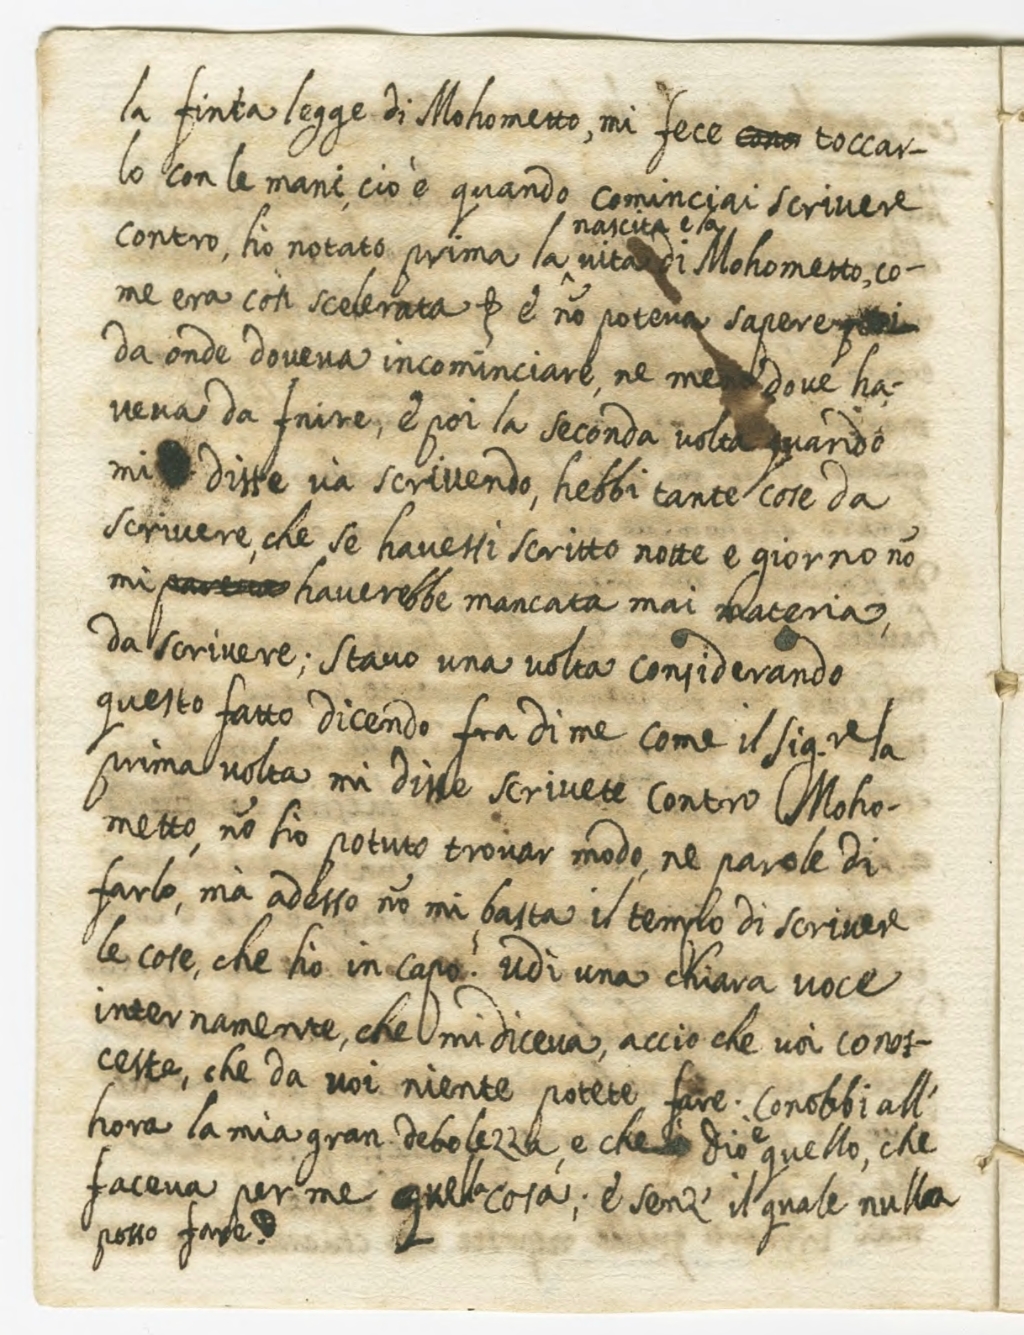 la finta legge di Mohometto, mi fece toccar-
lo con le mani, cio è quando cominciai scrivere
nascita e la
contro, hò notato prima la vita di Mohometto, co-
me era così scelerata è nõ poteva sapere
da onde doveva incominciare, ne meno dove ha-
veva da fnire, è poi la seconda volta quando
mi disse và scrivendo, hebbi tante cose da
scrivere, che se havessi scritto notte e giorno nõ
mi haverebbe mancata mai materia,
da scrivere; Stavo una volta considerando
questo fatto dicendo fra di me come il Sig.re la
prima volta mi disse scrivete contro Moho-
metto, nõ hò potuto trovar modo, ne parole di
farlo, mà adesso nõ mi basta il tempo di scriver
le cose, che hò in capo? Udì una chiara voce
internamente, che mi diceva, accio che voi conos-
ceste, che da voi niente potete fare. Conobbi all'
hora la mia gran debolezza, e che Dio è quello, che
faceva per me quella cosa; è senz' il quale nulla
posso fare.